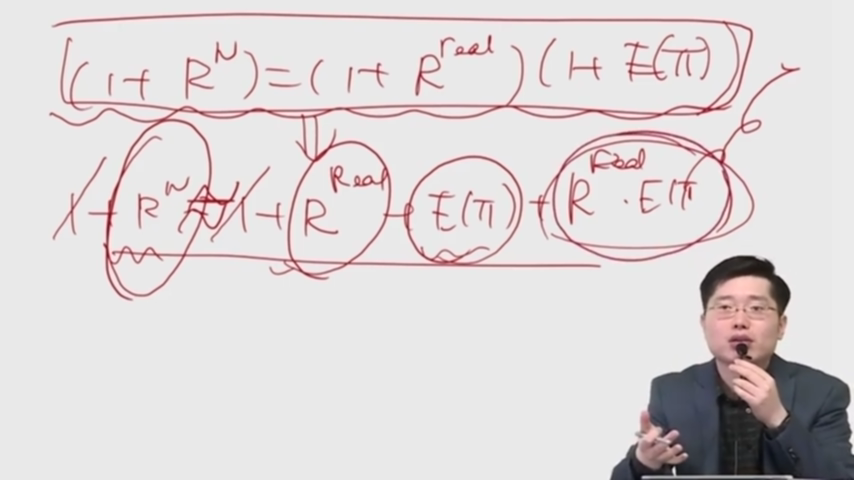 (1+ R^N)=(1+ R^real)(1+ E(π))
1+ R^N ≈ 1+ R^Real + E(π) + R^Real · E(π → 0